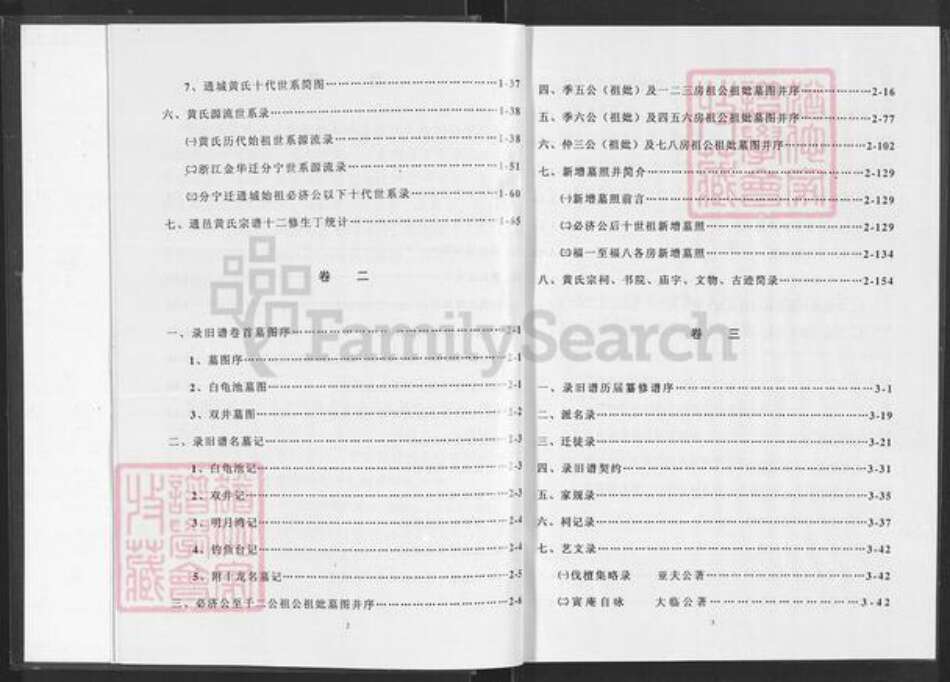 7、通城黄氏十代世系简图……1-37
六、黄氏源流世系录……1-38
㈠黄氏历代始祖世系源流录……1-38
㈡浙江金华迁分宁世系源流录……1-51
㈢分宁迁通城始祖必济公以下十代世系录……1-60
七、通邑黄氏宗谱十二修生丁统计……1-65
卷 二
一、录旧谱卷首墓图序……2-1
1、墓图序……2-1
2、白龟池墓图……2-1
3、双井墓图……2-2
二、录旧谱名墓记……2-3
1、白龟池记……2-3
2、双井记……2-3
3、明月湾记……2-4
4、钓鱼台记……2-4
5、附十龙名墓记……2-5
三、必济公至千二公祖公祖妣墓图并序……2-6
2
四、季五公（祖妣）及一二三房祖公祖妣墓图并序……2-16
五、季六公（祖妣）及四五六房祖公祖妣墓图并序……2-77
六、仲三公（祖妣）及七八房祖公祖妣墓图并序……2-102
七、新增墓照并简介……2-129
㈠新增墓照前言……2-129
㈡必济公后十世祖新增墓照……2-129
㈢福一至福八各房新增墓照……2-134
八、黄氏宗祠、书院、庙宇、文物、古迹简录……2-154
卷 三
一、录旧谱历届纂修谱序……3-1
二、派名录……3-19
三、迁徒录……3-21
四、录旧谱契约……3-31
五、家规录……3-35
六、祠记录……3-37
七、艺文录……3-42
㈠伐檀集略录 亚夫公著……3-42
㈡寅庵自咏 大临公著……3-42
3
FamilySearch